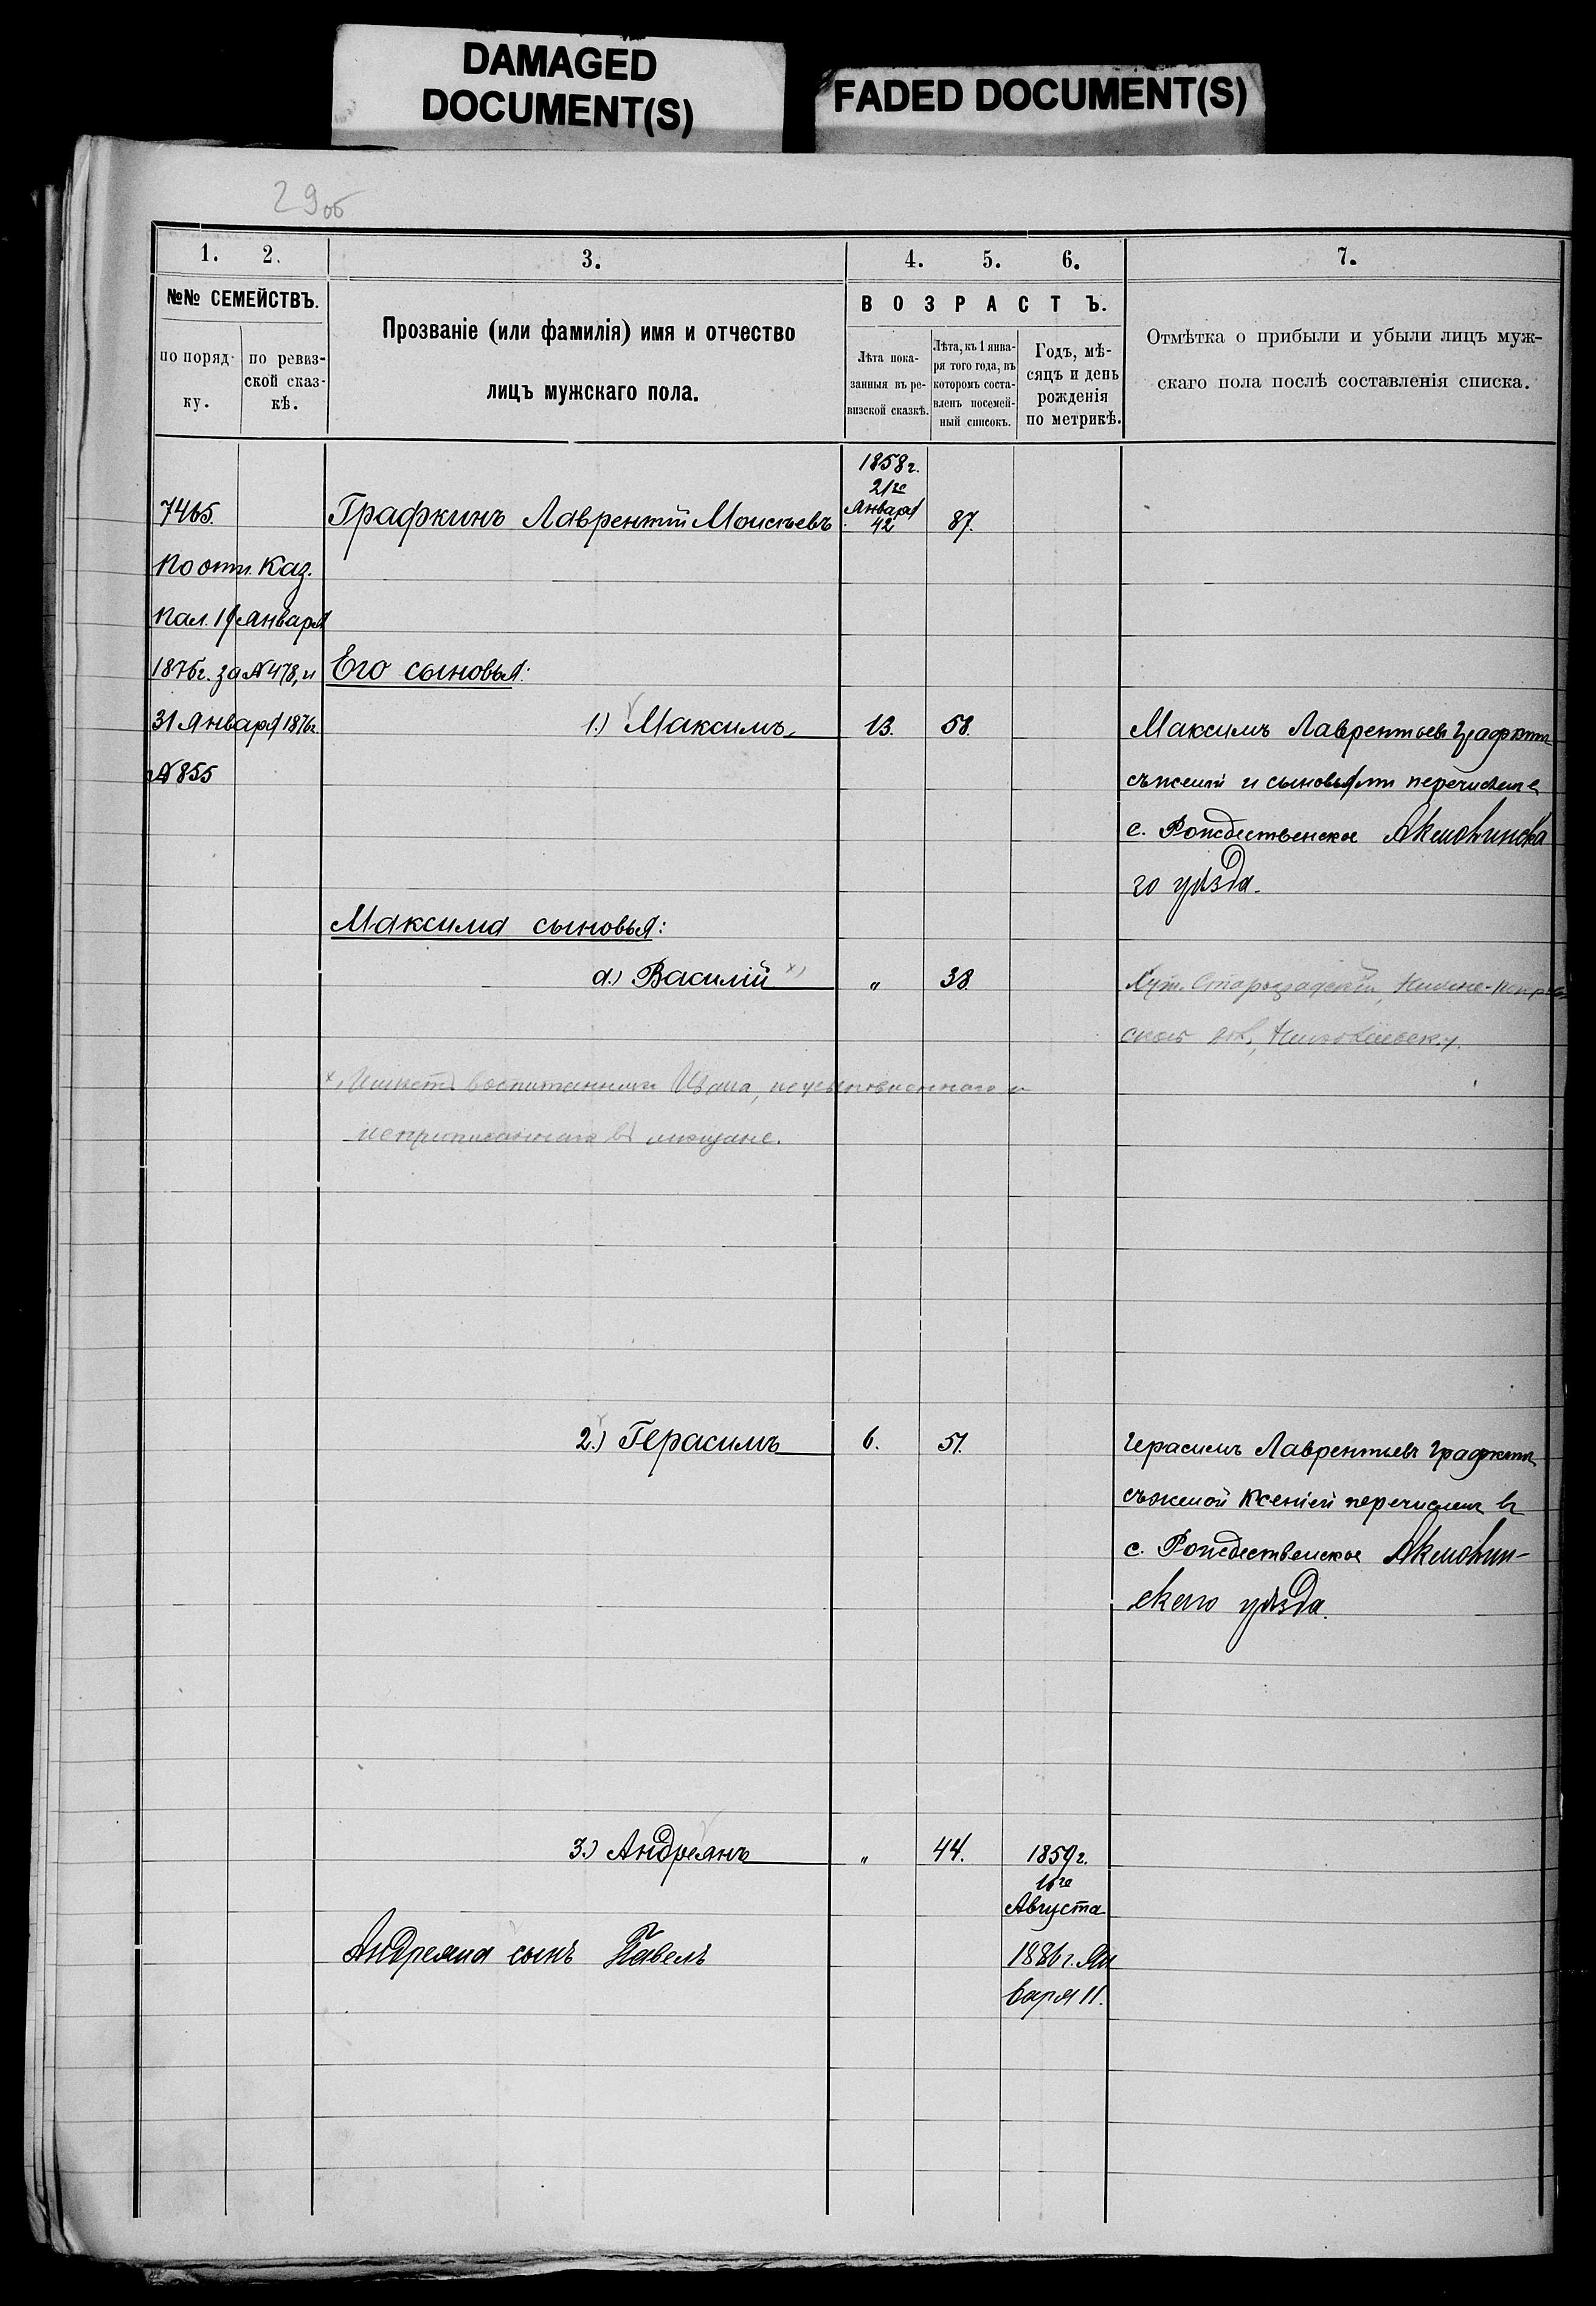 DAMAGED
DOCUMENT(S)
FADED DOCUMENT(S)
29об
1. 2. 3. 4. 5. 6. 7.
№№ СЕМЕЙСТВЪ.
по поряд-
ку.
по ревиз-
ской сказ-
кѣ.
Прозваніе (или фамилія) имя и отчество
лицъ мужскаго пола.
ВОЗРАСТЪ.
Лѣта пока-
занныя въ ре-
визской сказкѣ.
Лѣта, къ 1 янва-
ря того года, въ
которомъ соста-
вленъ посемей-
ный списокъ.
Годъ, мѣ-
сяцъ и день
рожденія
по метрикѣ.
Отмѣтка о прибыли и убыли лицъ муж-
скаго пола послѣ составленія списка.
1858 г.
21го
Января
7465. Графкинъ Лаврентій Моисѣевъ 42 87.
По отн. Каз.
Пал. 19 Января
1876 г. за №478, и Его сыновья:
31 Января 1876 г. 1.) Максимъ 13. 58. Максимъ Лаврентьевъ Графкинъ
№855 съ женой и сыновьями перечислен в
с. Рождественское Акмолинска
го уѣзда.
Максима сыновья:
а.) Василій х) " 38. Хут. Староградскій,
х) Имѣетъ воспитанника Ивана, неусыновленнаго и
неприписаннаго въ мещане.
2.) Герасимъ 6. 51. Герасимъ Лаврентьевъ Графкинъ
съ женой Ксеніей перечислен в
с. Рождественское Акмолин-
скаго уѣзда.
3.) Андреянъ " 44. 1859 г.
16го
Августа
Андреяна сынъ Павелъ 1886 г. Ян
варя 11.